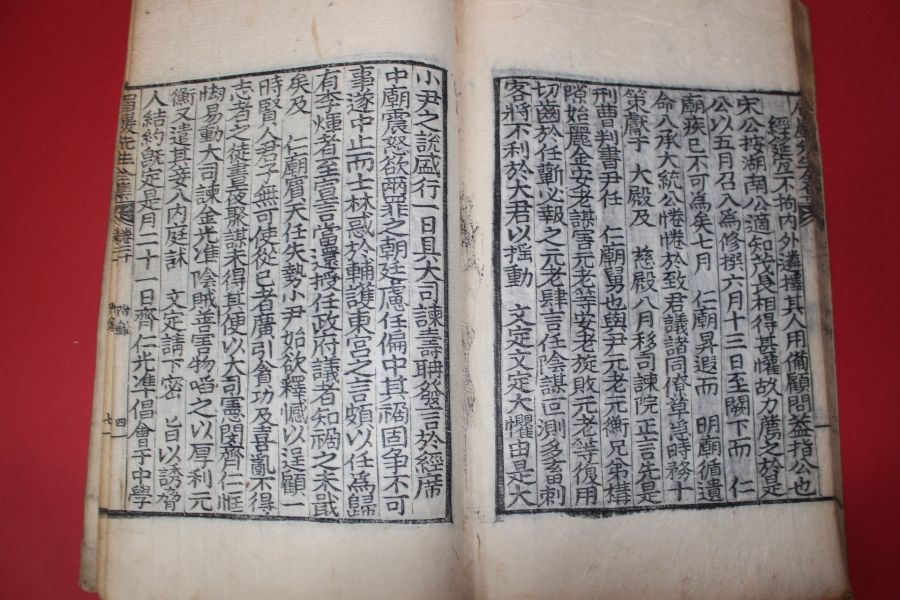 經筵宜不拘內外選擇其人用備顧問盖指公也
宋公按湖南公適知茂長相得甚懽故力薦之於是
公以五月召入爲修撰六月十三日至闕下而 仁
廟疾已不可爲矣七月 仁廟昇遐而 明廟循遺
命入承大統公惓惓於致君議諸同僚草爲時務十
策獻于 大殿及 慈殿八月移司諫院正言先是
刑曹判書尹任 仁廟舅也與尹元老元衡兄弟構
隙始麗金安老謀害元老等安老旋敗元老等復用
切齒於任蘄必報之元老肆言任陰謀叵測多亥刺
客將不利於大君以搖動 文定文定大懼由是大
小尹之說盛行一日具大司諫壽聃發言於經席
中廟震怒欲兩罪之朝廷慮任偏中其禍固爭不可
事遂中止而士林感於輔護東宮之言頗以任爲歸
有李煇者至宣言當還授任政府議者知禍之未戢
矣及 仁廟賓天任失勢小尹始欲釋憾以逞顧一
時賢人君子無可使從己者廣引貪功及喜亂不得
志者之徒晝夜聚謀未得其便以大司憲閔齊仁恇
㤼易動大司諫金光準陰賊善害物啗之以厚利元
衡又遣其妾入內庭訹 文定請下密 旨以誘脅
人結約旣定是月二十一日齊仁光準倡會于中學
眉巖先生全集 卷二十 附錄 四
七